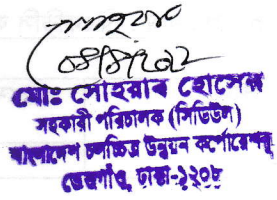 মোঃ সোহরাব হোসেন
সহকারী পরিচালক (সিডিউল)
বাংলাদেশ চলচ্চিত্র উন্নয়ন কর্পোরেশন
তেজগাঁও, ঢাকা-১২০৮